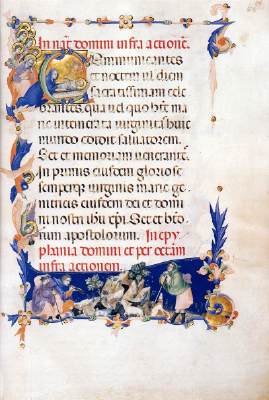 In nat domini infra actione.
Communicantes
et noctem vl diem
sacratissimam cele
brantes qua vel quo bte ma
rie intemerata virginitas huic
mundo edidit salvatorem.
Set et memoriam venerante
In primis eiusdem gloriose
semperque virginis marie ge
nitricis eiusdem dei et domi
ni nostri ihu xpi. Set et bto
rum apostolorum. In epy
phania domini et per octam
infra actionem.